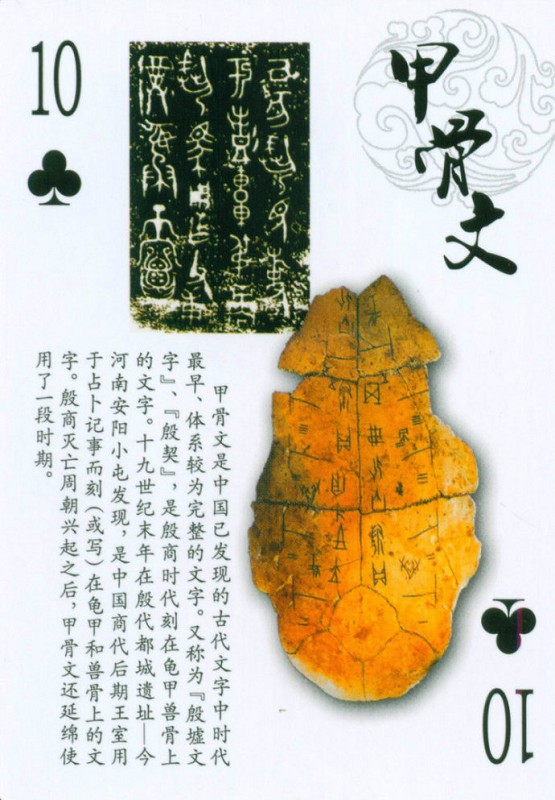 10
甲骨文
甲骨文是中国已发现的古代文字中时代
最早、体系较为完整的文字。又称为『殷墟文
字』、『殷契』，是殷商时代刻在龟甲兽骨上
的文字。十九世纪末年在殷代都城遗址—今
河南安阳小屯发现，是中国商代后期王室用
于占卜记事而刻（或写）在龟甲和兽骨上的文
字。殷商灭亡周朝兴起之后，甲骨文还延绵使
用了一段时期。
10